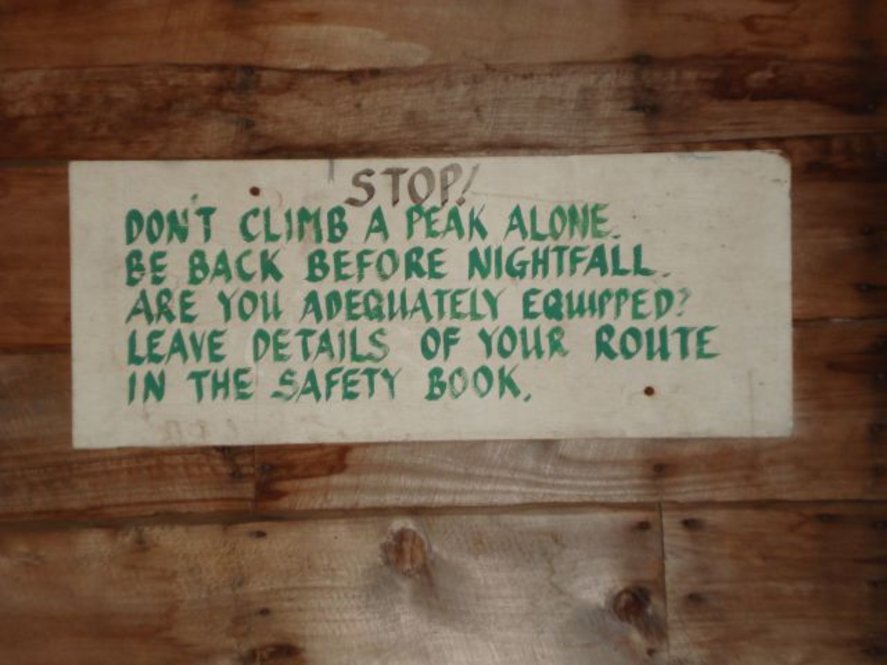 STOP!
DON'T CLIMB A PEAK ALONE.
BE BACK BEFORE NIGHTFALL.
ARE YOU ADEQUATELY EQUIPPED?
LEAVE DETAILS OF YOUR ROUTE
IN THE SAFETY BOOK.